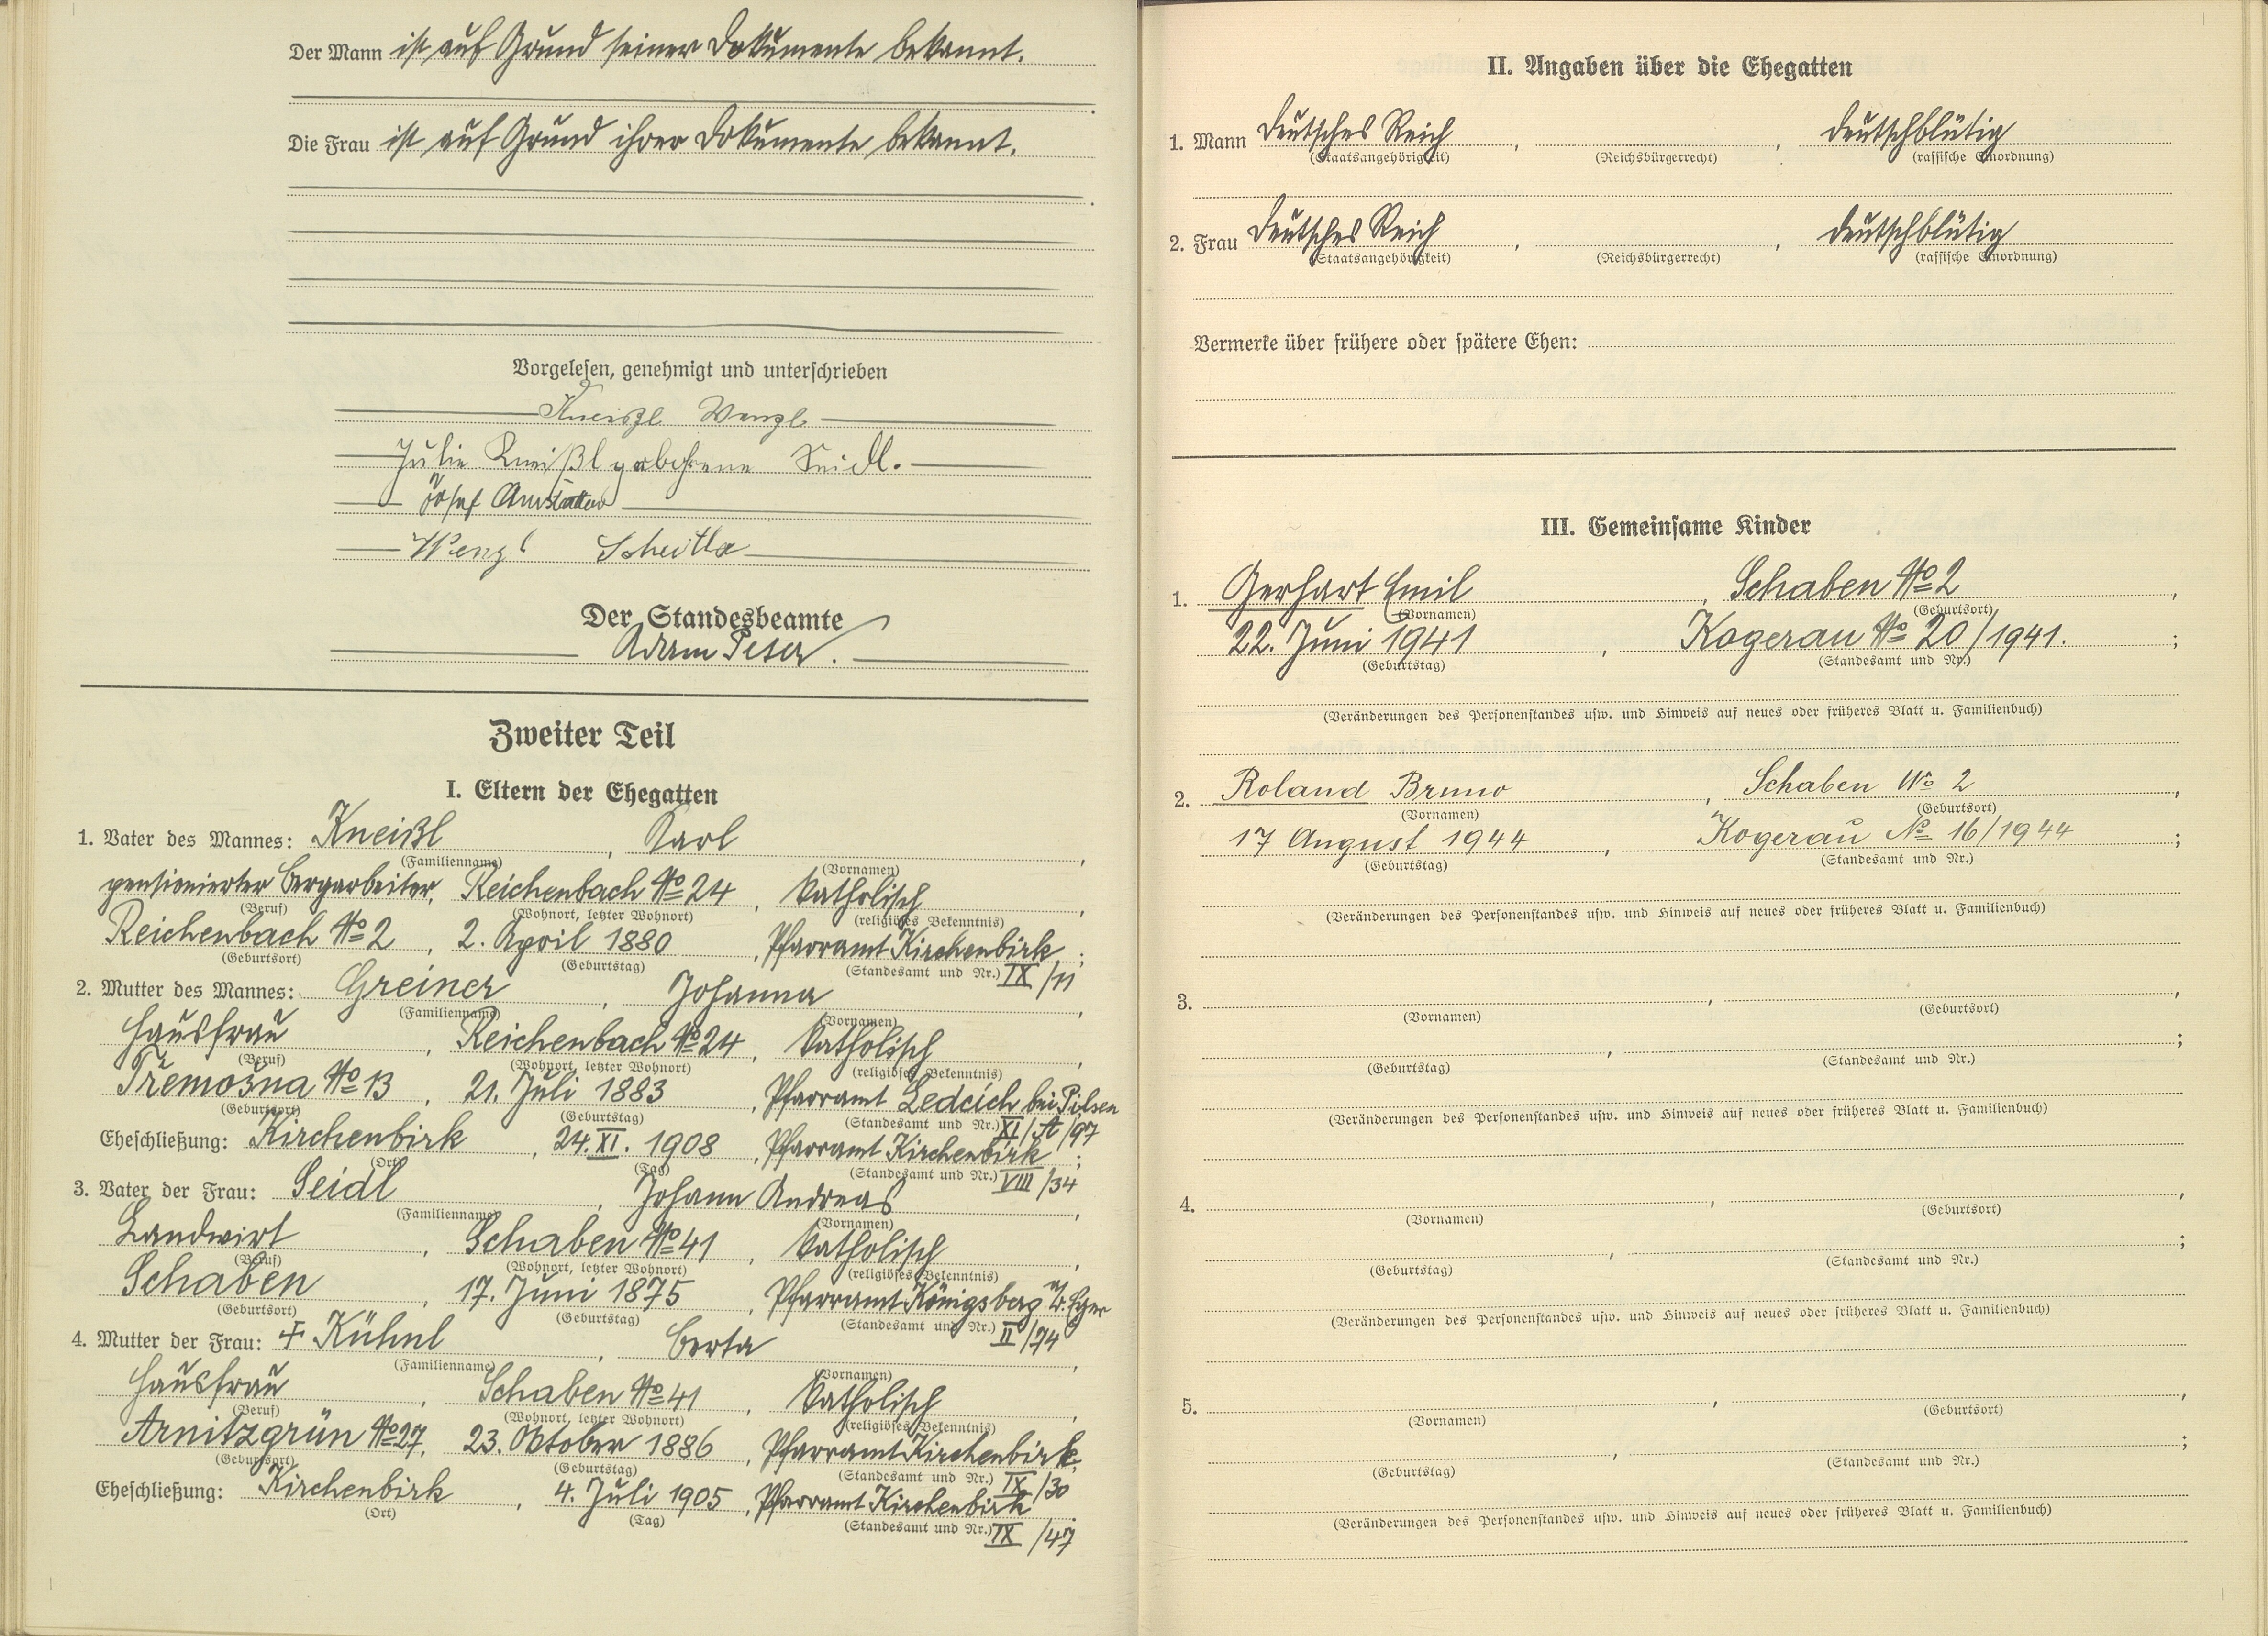 Der Mann ist auf Grund seiner Dokumente bekannt.
Die Frau ist auf Grund ihrer Dokumente bekannt.
Vorgelesen, genehmigt und unterschrieben
Kneißl Wenzl
Julie Kneißl geborene Seidl.
Josef
Wenzl
Der Standesbeamte
Adam Peter.
Zweiter Teil
I. Eltern der Ehegatten
1. Vater des Mannes: Kneißl, Karl,
(Familienname) (Vornamen)
pensionierter Bergarbeiter, Reichenbach No 24, katholisch,
(Beruf) (Wohnort, letzter Wohnort) (religiöses Bekenntnis)
Reichenbach No 2, 2. April 1880, Pfarramt Kirchenbirk;
(Geburtsort) (Geburtstag) (Standesamt und Nr.) IX/11
2. Mutter des Mannes: Greiner, Johanna,
(Familienname) (Vornamen)
Hausfrau, Reichenbach No 24, katholisch,
(Beruf) (Wohnort, letzter Wohnort) (religiöses Bekenntnis)
Třemošna No 13, 21. Juli 1883, Pfarramt Ledcích bei Pilsen
(Geburtsort) (Geburtstag) (Standesamt und Nr.) XI/St/97
Eheschließung: Kirchenbirk, 24. XI. 1908, Pfarramt Kirchenbirk;
(Ort) (Tag) (Standesamt und Nr.) VIII/34
3. Vater der Frau: Seidl, Johann Andreas,
(Familienname) (Vornamen)
Landwirt, Schaben No 41, katholisch,
(Beruf) (Wohnort, letzter Wohnort) (religiöses Bekenntnis)
Schaben, 17. Juni 1875, Pfarramt Königsberg a/d. Eger
(Geburtsort) (Geburtstag) (Standesamt und Nr.) II/74
4. Mutter der Frau: + Kühnl, Berta,
(Familienname) (Vornamen)
Hausfrau, Schaben No 41, katholisch,
(Beruf) (Wohnort, letzter Wohnort) (religiöses Bekenntnis)
Arnitzgrün No 27, 23. Oktober 1886, Pfarramt Kirchenbirk;
(Geburtsort) (Geburtstag) (Standesamt und Nr.) IX/30
Eheschließung: Kirchenbirk, 4. Juli 1905, Pfarramt Kirchenbirk.
(Ort) (Tag) (Standesamt und Nr.) IX/47
II. Angaben über die Ehegatten
1. Mann Deutsches Reich, , deutschblütig
(Staatsangehörigkeit) (Reichsbürgerrecht) (rassische Einordnung)
2. Frau Deutsches Reich, , deutschblütig
(Staatsangehörigkeit) (Reichsbürgerrecht) (rassische Einordnung)
Vermerke über frühere oder spätere Ehen:
III. Gemeinsame Kinder
1. Gerhart Emil, Schaben No 2,
(Vornamen) (Geburtsort)
22. Juni 1941, Kogerau No 20/1941.;
(Geburtstag) (Standesamt und Nr.)
(Veränderungen des Personenstandes usw. und Hinweis auf neues oder früheres Blatt u. Familienbuch)
2. Roland Bruno, Schaben No 2,
(Vornamen) (Geburtsort)
17 August 1944, Kogerau No 16/1944;
(Geburtstag) (Standesamt und Nr.)
(Veränderungen des Personenstandes usw. und Hinweis auf neues oder früheres Blatt u. Familienbuch)
3. , ,
(Vornamen) (Geburtsort)
, ;
(Geburtstag) (Standesamt und Nr.)
(Veränderungen des Personenstandes usw. und Hinweis auf neues oder früheres Blatt u. Familienbuch)
4. , ,
(Vornamen) (Geburtsort)
, ;
(Geburtstag) (Standesamt und Nr.)
(Veränderungen des Personenstandes usw. und Hinweis auf neues oder früheres Blatt u. Familienbuch)
5. , ,
(Vornamen) (Geburtsort)
, ;
(Geburtstag) (Standesamt und Nr.)
(Veränderungen des Personenstandes usw. und Hinweis auf neues oder früheres Blatt u. Familienbuch)